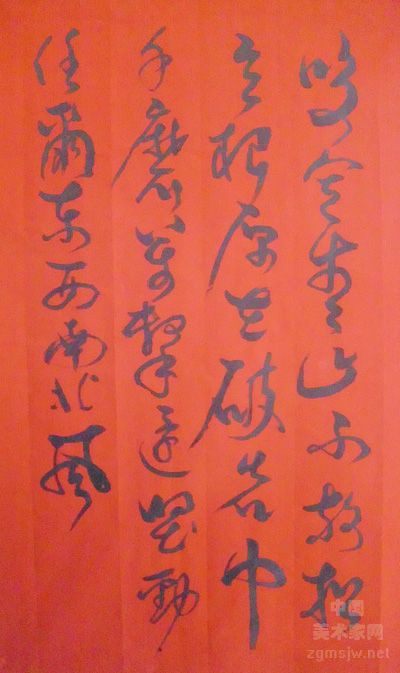 咬定青山不放松
立根原在破岩中
千磨萬擊還堅勁
任爾東西南北風
中国
美术家网
zgmsjw.net